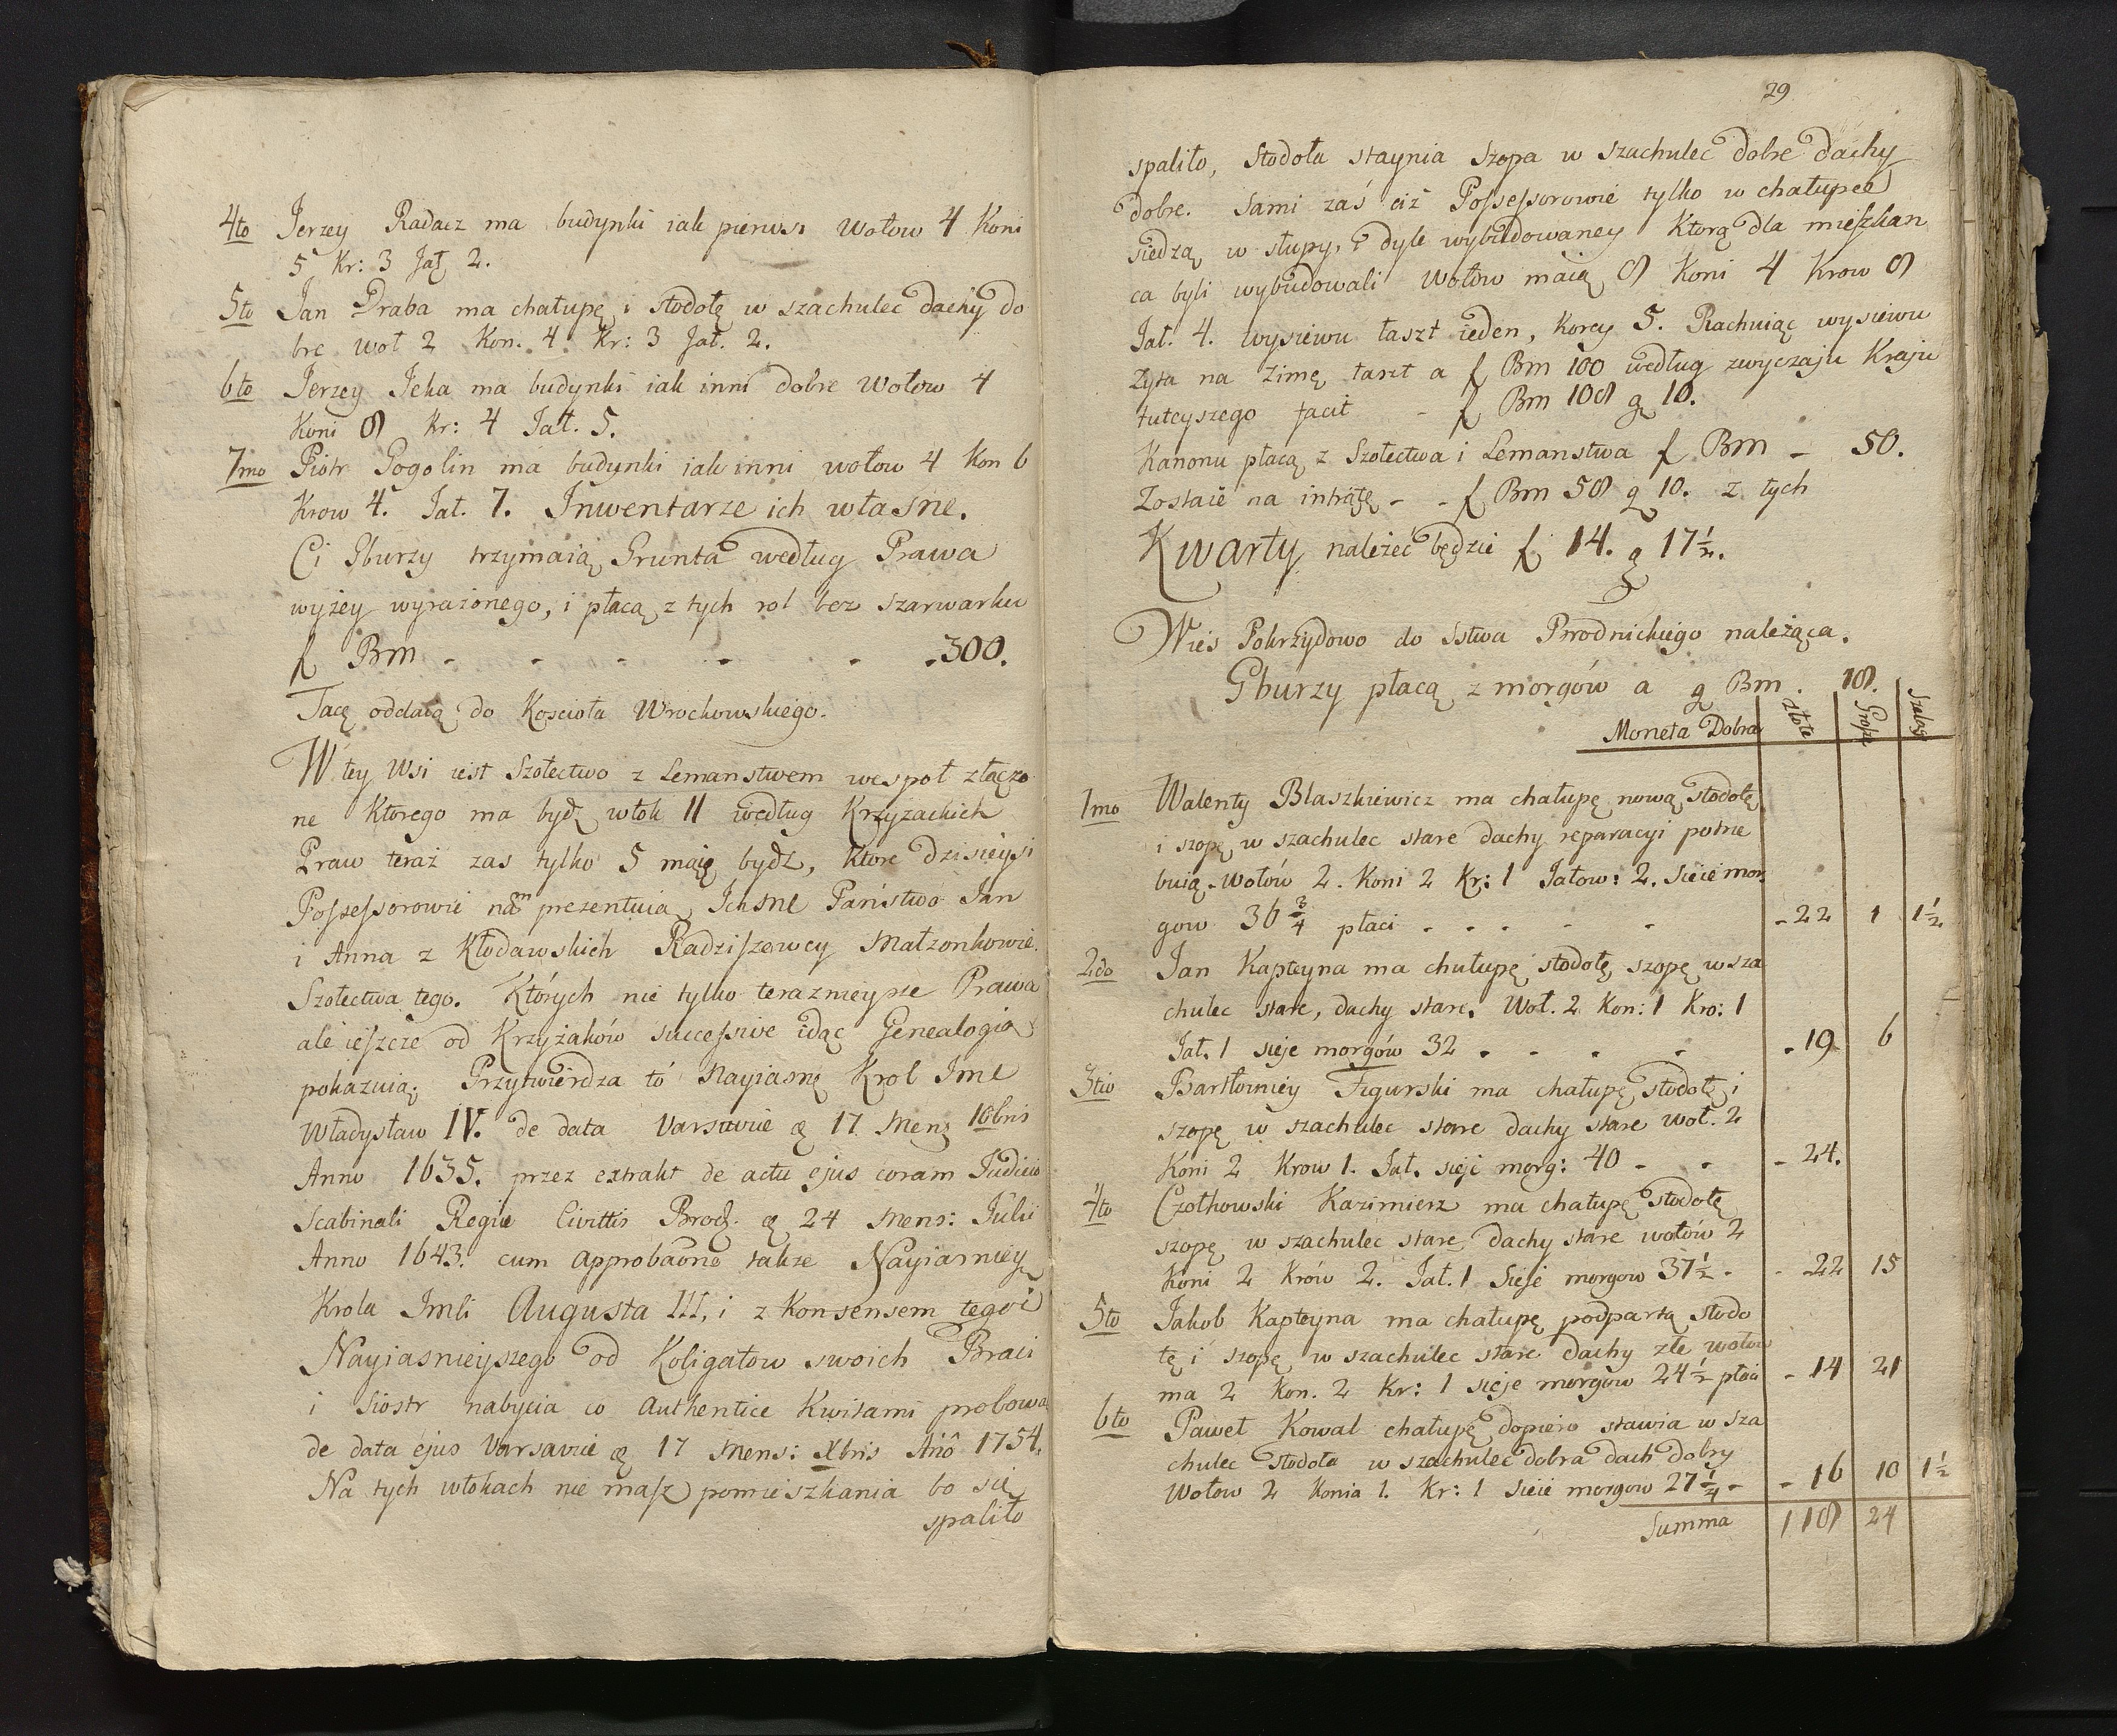 4to Jerzey Radacz ma budynki iak pierwsi wołow 4 Koni
5 Kr: 3 Jał 2.
5to Jan Draba ma chałupę i stodołę w szachulec dachy do
bre woł 2 Kon. 4 Kr: 3 Jał. 2.
6to Jerzey Jeka ma budynki iak inni dobre wołow 4
Koni 8 Kr: 4 Jał. 5.
7mo Piotr Gogolin ma budynki iak inni wołow 4 Kon 6
Krow 4. Jał. 7. Inwentarze ich własne.
Ci Gburzy trzymaią Grunta według Prawa
wyżey wyrażonego, i płacą z tych rol bez szarwarku
f Bm - - - - - -300.
Tacę oddaią do Koscioła Wrockowskiego.
W tey Wsi iest Szołectwo z Lemanstwem wespoł złączo
ne Ktorego ma bydź włok 11 według Krzyżackich
Praw teraz zas tylko 5 maię bydź, Ktore dzisieysi
Possessorowie nam prezentuią, Ichmć Państwo Jan
i Anna z Kłodawskich Radziszewcy Małzonkowie
Szołectwa tego. Których nie tylko teraznieysze Prawa
ale ieszcze od Krzyżaków successive idąc Genealogia
pokazuią; Przytwierdza tó Nayiasny Krol Jmć
Władysław IV. de data Varsaviæ 17 Mens 10bris
Anno 1635. przez extrakt de actu ejus coram Judicio
Scabinali Regiæ Civittis Brod. 24 Mens: Julii
Anno 1643. cum approbaõne takze Nayiasniey
Krola Jmći Augusta III, i z Konsensem tegoż
Nayiasnieyszego od Koligatow swoich Braci
i Siostr nabycia co authentice Kwitami probowa
de data ejus Varsaviæ 17 Mens: Xbris Añô 1754.
Na tych włokach nie masz pomieszkania bo się
spaliło
29
spaliło, stodoła staynia Szopa w szachulec dobre dachy
dobre. Sami zaś ciż Possessorowie tylko w chałupce
siedzą w słupy, i dyle wybudowaney Ktorą dla mieszkan
ca byli wybudowali Wołow maią 8 Koni 4 Krow 8
Jał. 4. wysiewu łaszt ieden, Korcy 5. Rachuiąc wysiewu
Zyta na zimę łaszt a f Bm 100 według zwyczaju Kraju
tuteyszego facit - f Bm 108 g 10.
Kanonu płacą z Szołectwa i Lemanstwa f Bm - 50.
Zostaie na intratę - - f Bm 58 g 10. z tych
Kwarty należeć będzie f 14. g 17½.
Wieś Pokrzydowo do Sstwa Prrodnickiego należąca.
Gburzy płacą z morgów a g Bm. 18.
Moneta Dobra Złote Grosze Szelągi
1mo Walenty Blaszkiewicz ma chałupę nową, stodołę
i szopę w szachulec stare dachy reparacyi potrze
buią. wołów 2. Koni 2 Kr: 1 Jałow: 2. Sieie mor
gow 36¾ płaci - - - - - -22 1 1½
2do Jan Kapteyna ma chałupę stodołę, szopę w sza
chulec stare, dachy stare. Woł. 2 Kon: 1 Kro: 1
Jał. 1 sieje morgów 32 - - - - -19 6
3tio Bartłomiey Figurski ma chałupę, stodołę, i
szopę w szachulec stare dachy stare woł. 2
Koni 2 Krow 1. Jał. sieje morg: 40 - - -24.
4to Czołkowski Kazimierz ma chałupę stodołę
szopę w szachulec stare, dachy stare wołów 2
Koni 2 Krów 2. Jał. 1 Sieje morgow 37½ - -22 15
5to Jakob Kapteyna ma chałupę podpartą, stodo
łę i szopę w szachulec stare dachy złe wołow
ma 2 Kon. 2 Kr: 1 sieje morgow 24½ płaci -14 21
6to Paweł Kowal chałupę dopiero stawia w sza
chulec stodoła w szachulec dobra dach dobry
Wołow 2 Konia 1. Kr: 1 sieie morgow 27¼ - -16 10 1½
Summa 118 24